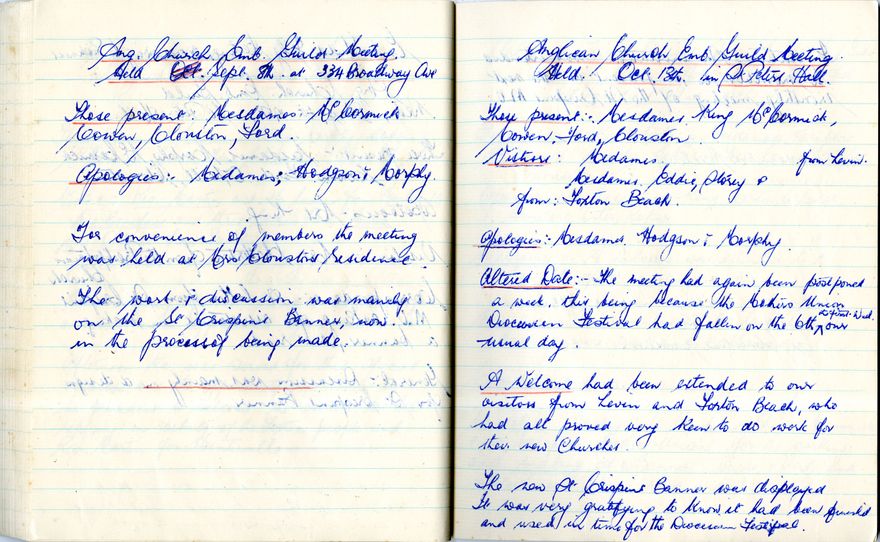 Ang. Church Emb. Guild Meeting
Held Oct. Sept. 8th. at 334 Broadway Ave
Those present: Mesdames: McCormick
Cowen, Clouston, Ford.
Apologies:- Mesdames; Hodgson & Morphy.
For convenience of members the meeting
was held at Mrs Clouston's residence.
The work & discussion was mainly
on the St Crispins Banner, now
in the process of being made.
Anglican Church Emb. Guild Meeting.
Held. Oct. 13th. in St Peters Hall.
Those present:- Mesdames King McCormick,
Cowen, Ford, Clouston
Visitors: Mesdames from Levin.
Mesdames. Eddie, Storey &
from: Foxton Beach.
Apologies: Mesdames. Hodgson & Morphy.
Altered Date:- The meeting had again been postponed
a week, this being because the Mothers Union
Diocesan Festival had fallen on the 6th, the first Wed. our
usual day.
A Welcome had been extended to our
visitors from Levin and Foxton Beach, who
had all proved very keen to do work for
their new Churches.
The new St Crispins Banner was displayed
It was very gratifying to know it had been finished
and used in time for the Diocesan Festival.